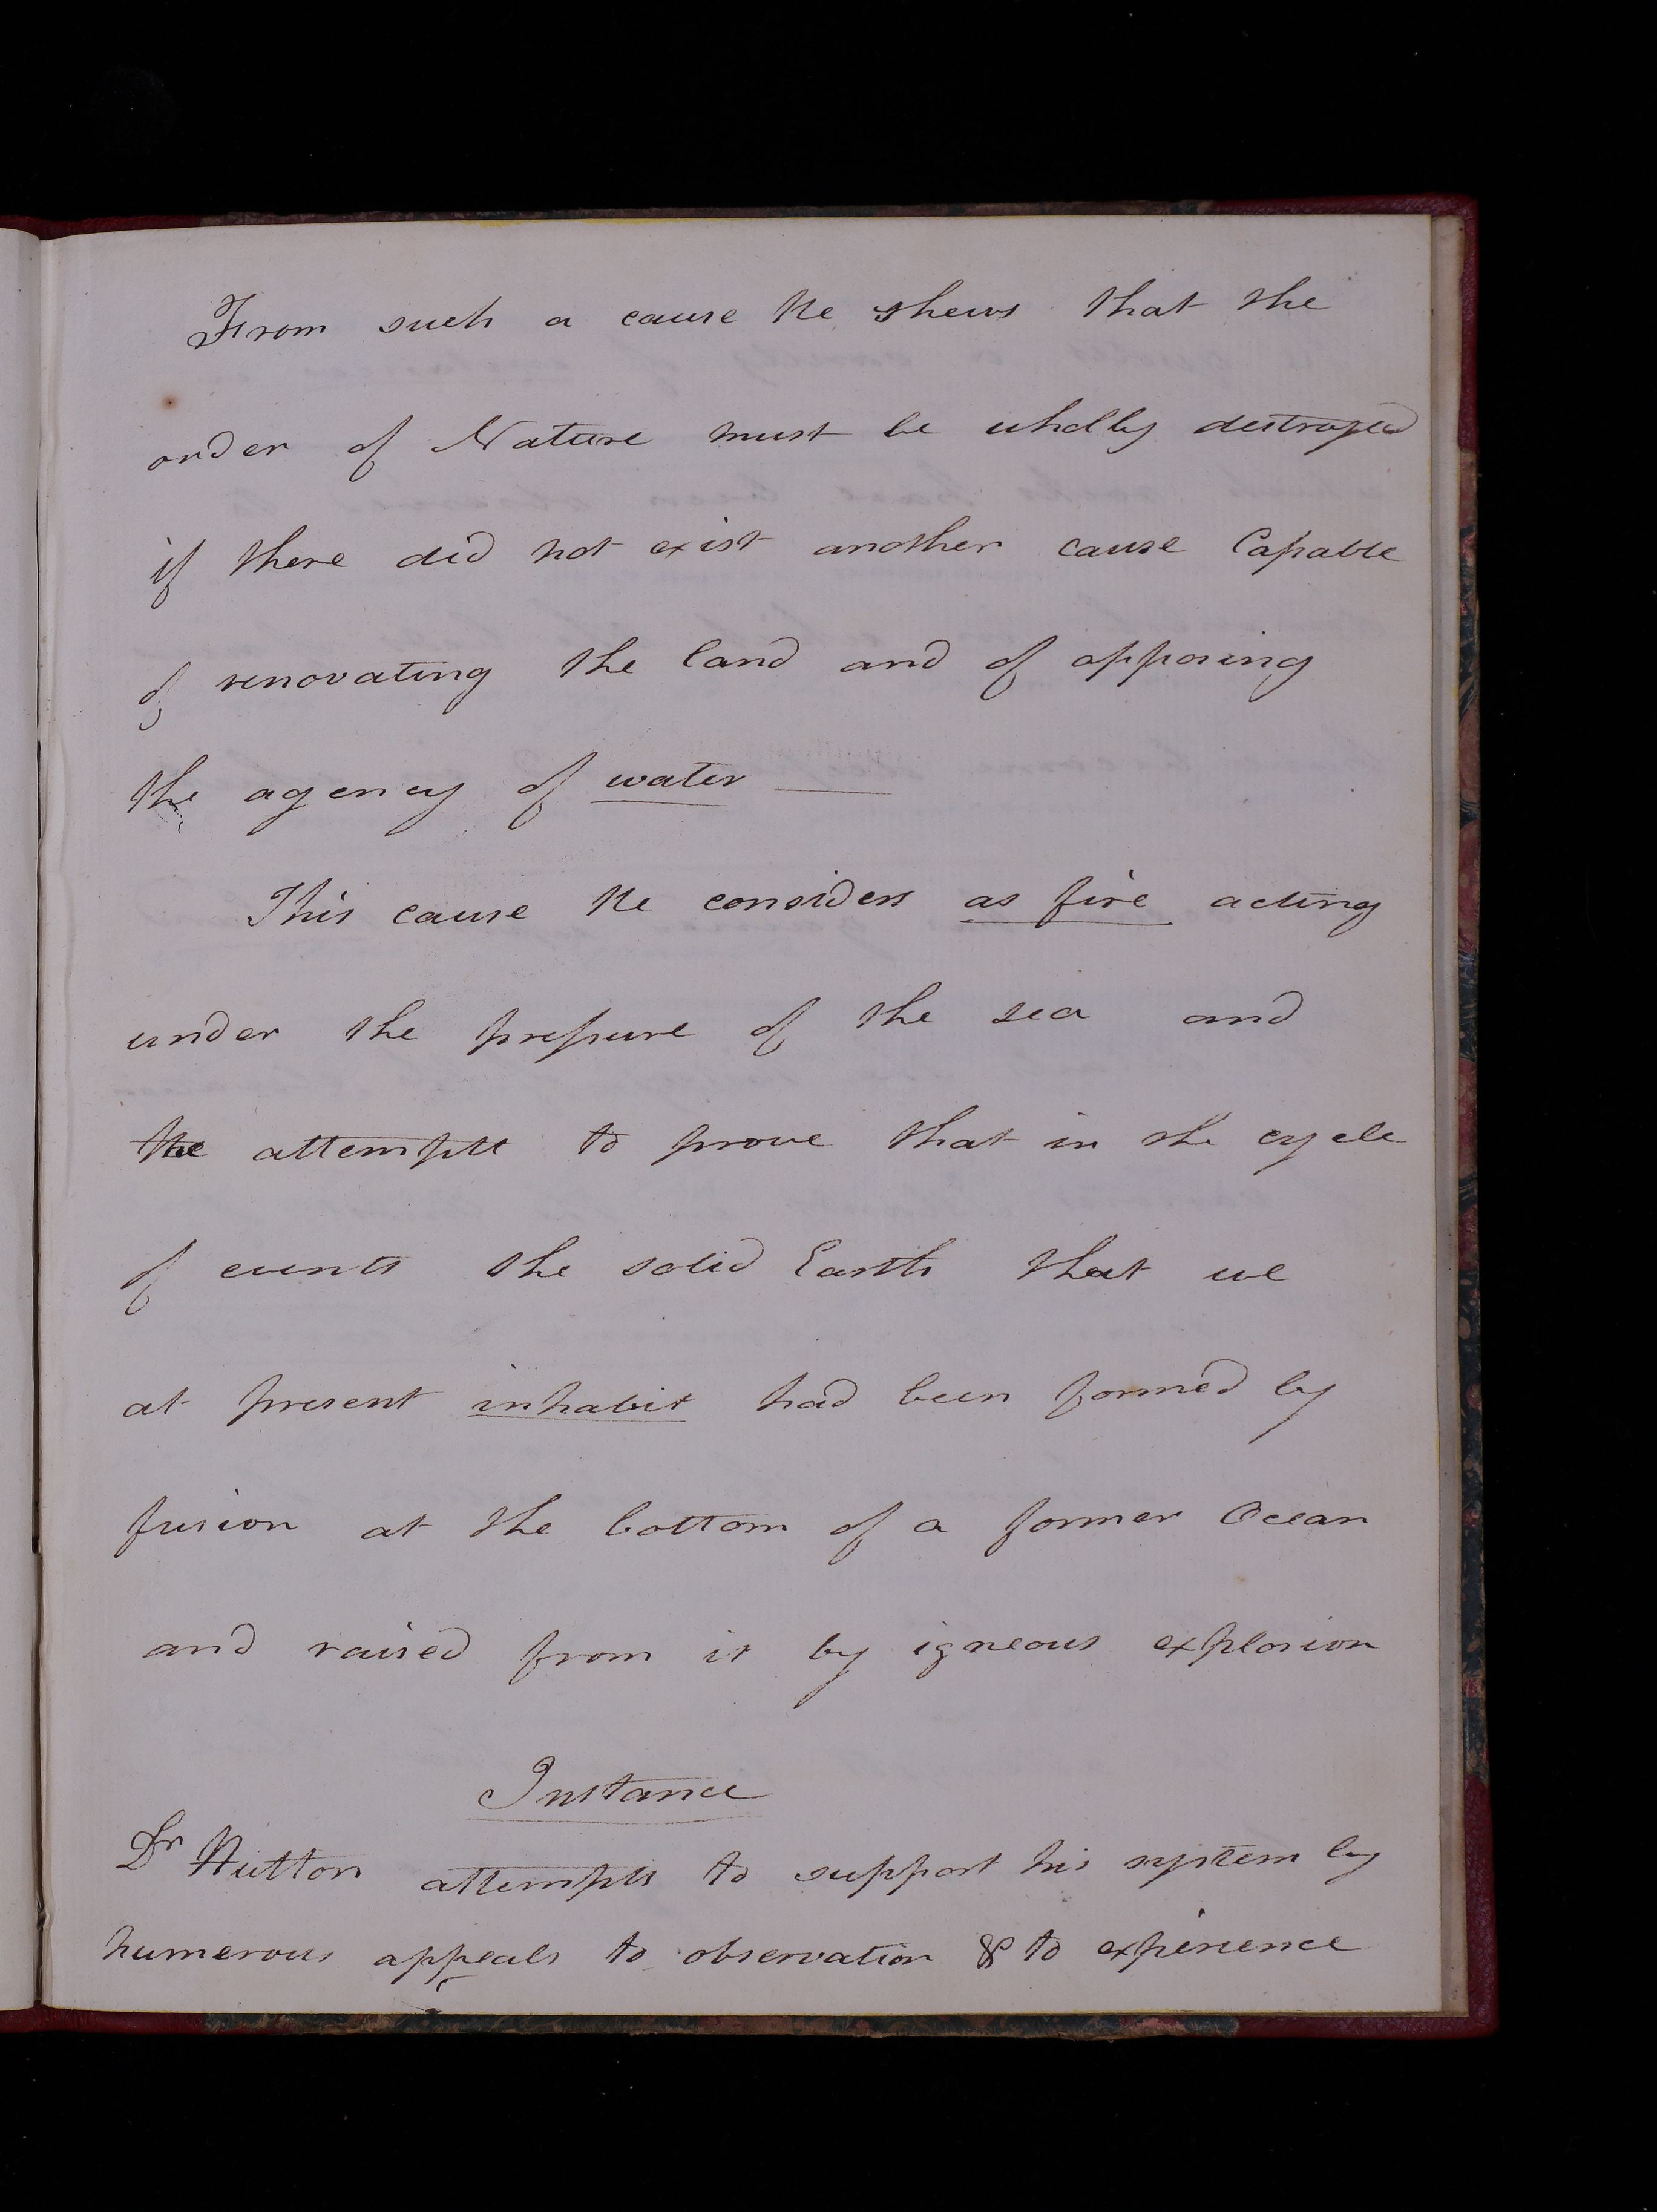 From such a cause He shews that the
order of Nature must be wholly destroyed
if there did not exist another cause Capable
of renovating the land and of opposing
the agency of water —
This cause He considers as fire acting
under the pressure of the sea and
He attempts to prove that in the cycle
of events the solid Earth that we
at present inhabit had been formed by
fusion at the bottom of a former Ocean
and raised from it by igneous explosion
Instance
Dr Hutton attempts to support his system by
numerous appeals to observation & to experience